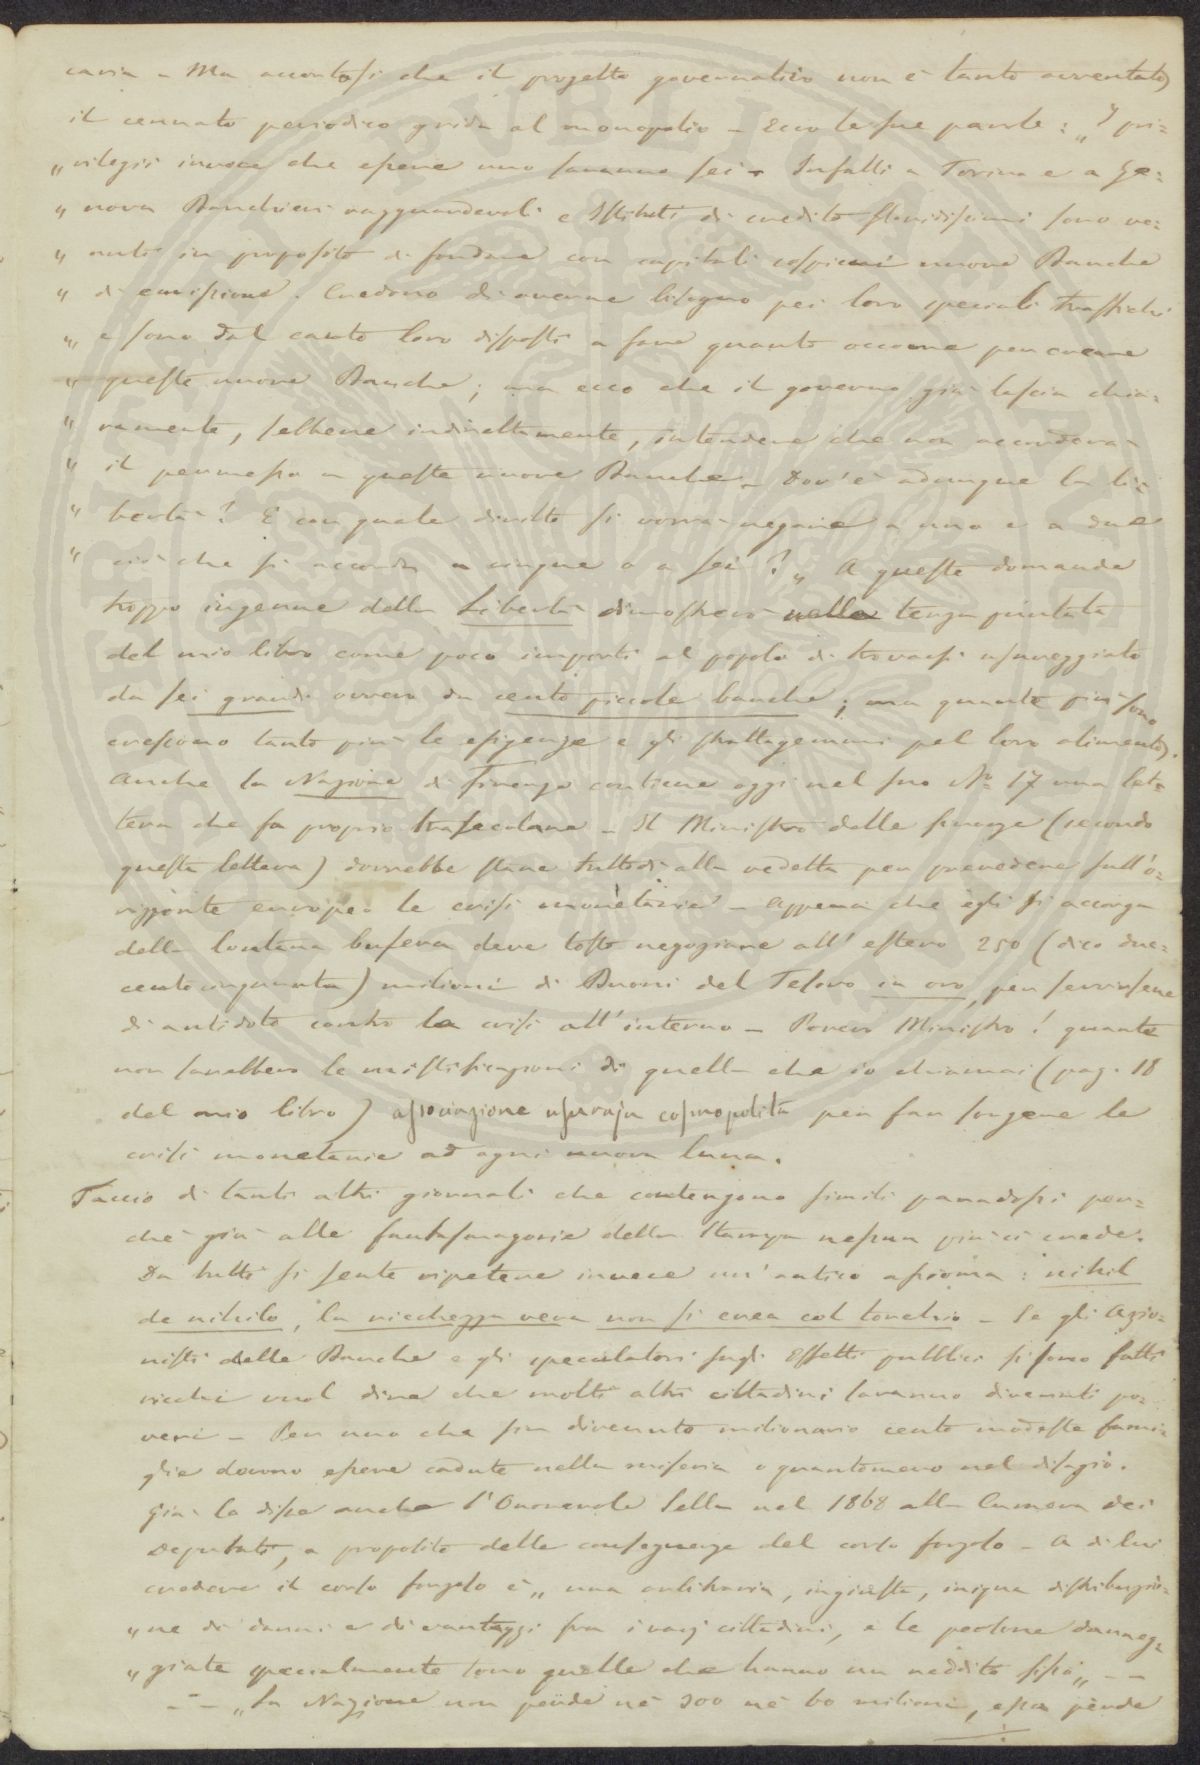 caria - Ma accortosi che il progetto governativo non è tanto avventato,
il cennato periodico grida al monopolio - Ecco le sue parole: „I pri=
„vilegii invece che essere uno saranno sei - Infatti a Torino e a Ge=
„nova Banchieri ragguardevoli e Istituti di credito floridissimi sono ve=
„nuti in proposito di fondare con capitali cospicui nuove Banche
„di emissione. Credono di averne bisogno pei loro speciali traffichi
„e sono dal canto loro disposti a fare quanto occorre per creare
„queste nuove Banche; ma ecco che il governo già lascia chia=
„ramente, sebbene indirettamente, intendere che non accorderà
„il permesso a queste nuove Banche - Dov'è adunque la li=
„bertà? E con quale diritto si vorrà negare a uno e a due
„ciò che si accorda a cinque o a sei?„ A queste domande
troppo ingenue della Libertà dimostrerò nella terza puntata
del mio libro come poco importi al popolo di trovarsi usureggiato
da sei grandi ovvero da cento piccole banche; ma quante più sono
crescono tanto più le esigenze e gli strattagemmi pel loro alimento.
Anche la Nazione di Firenze contiene oggi nel suo N.º 17 una let=
tera che fa proprio trasecolare - Il Ministro delle finanze (secondo
questa lettera) dovrebbe stare tuttodì alla vedetta per prevedere sull'o=
rizzonte europeo le crisi monetarie - Appena che egli si accorga
della lontana bufera deve tosto negoziare all'estero 250 (dico due=
centocinquanta) milioni di Buoni del Tesoro in oro, per servirsene
di antidoto contro la crisi all'interno - Povero Ministro! quante
non sarebbero le mistificazioni di quella che io chiamai (pag. 18
del mio libro) associazione usuraja cosmopolita per far sorgere le
crisi monetarie ad ogni nuova luna.
Taccio di tanti altri giornali che contengono simili paradossi per=
chè già alle fantasmagorie della Stampa nessun più ci crede.
Da tutti si sente ripetere invece un'antico assioma: nihil
de nihilo, la ricchezza vera non si crea col torchio - Se gli Azio=
nisti delle Banche e gli speculatori sugli Effetti pubblici si sono fatti
ricchi vuol dire che molti altri cittadini saranno divenuti po=
veri - Per uno che sia divenuto milionario cento modeste fami=
glie devono essere cadute nella miseria o quantomeno nel disagio.
Già lo disse anche l'Onorevole Sella nel 1868 alla Camera dei
Deputati, a proposito delle conseguenze del corso forzoso - A di lui
credere il corso forzoso è „una arbitraria, ingiusta, iniqua distribuzio=
„ne di danni e di vantaggi fra i varj cittadini, e le persone danneg=
„giate specialmente sono quelle che hanno un reddito fisso„ - -
- - „La Nazione non perde nè 300 nè 60 milioni, essa perde